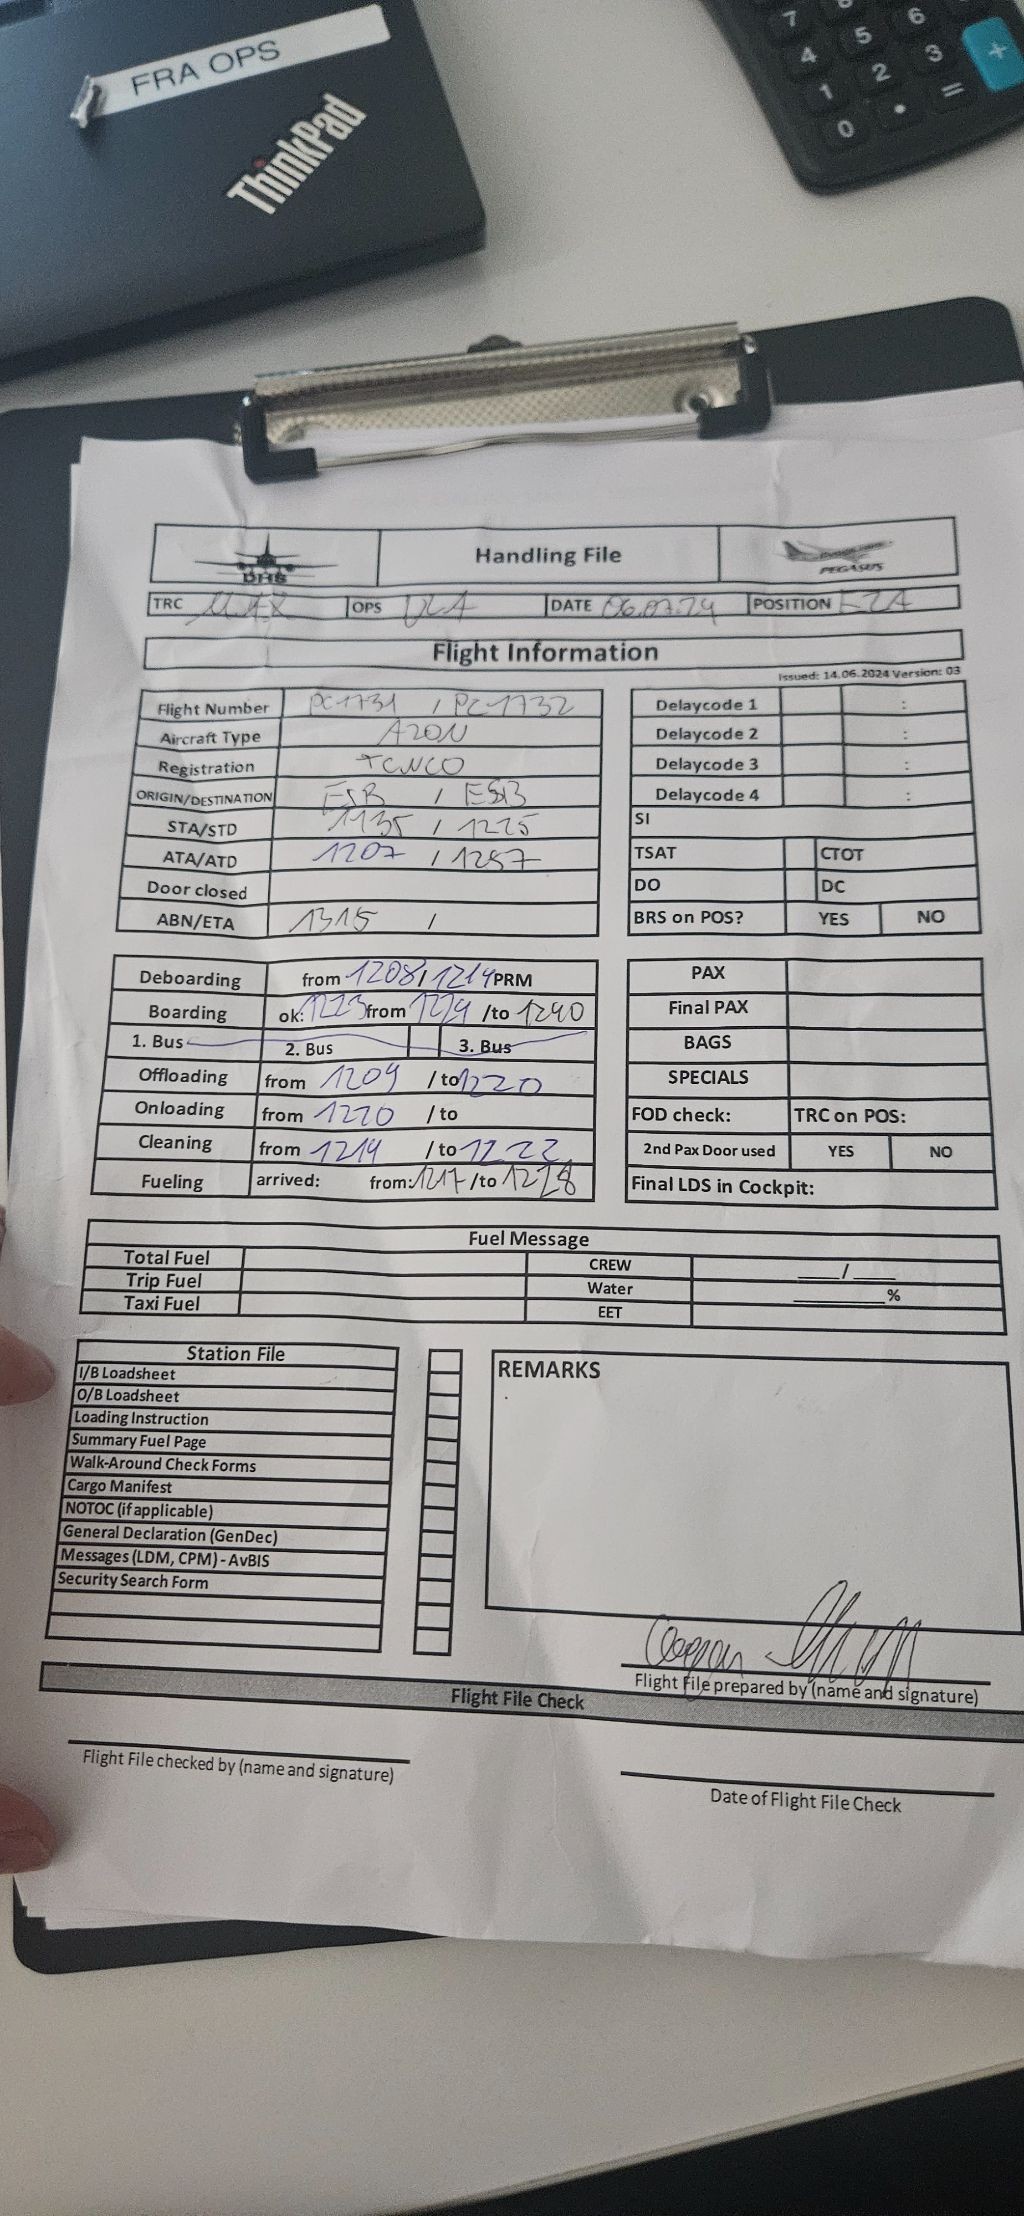 FRA OPS
ThinkPad
7 6
4 5 3 +
1 2 =
0 .
DHS
Handling File
PEGASUS
TRC MAX OPS DATE 06.07.24 POSITION
Flight Information
Issued: 14.06.2024 Version: 03
Flight Number PC1731 / PC1732
Aircraft Type A20N
Registration TCNCO
ORIGIN/DESTINATION ESB / ESB
STA/STD 1135 / 1225
ATA/ATD 1207 / 1257
Door closed
ABN/ETA 1315 /
Delaycode 1 :
Delaycode 2 :
Delaycode 3 :
Delaycode 4 :
SI
TSAT CTOT
DO DC
BRS on POS? YES NO
Deboarding from 1208 / 1214 PRM
Boarding ok: 1223 from 1224 /to 1240
1. Bus 2. Bus 3. Bus
Offloading from 1209 / to 1220
Onloading from 1220 / to
Cleaning from 1214 / to 1222
Fueling arrived: from: 1217 /to 1228
PAX
Final PAX
BAGS
SPECIALS
FOD check: TRC on POS:
2nd Pax Door used YES NO
Final LDS in Cockpit:
Fuel Message
Total Fuel CREW ____/____
Trip Fuel Water ________%
Taxi Fuel EET
Station File
I/B Loadsheet
O/B Loadsheet
Loading Instruction
Summary Fuel Page
Walk-Around Check Forms
Cargo Manifest
NOTOC (if applicable)
General Declaration (GenDec)
Messages (LDM, CPM) - AvBIS
Security Search Form
REMARKS
Flight File prepared by (name and signature)
Flight File Check
Flight File checked by (name and signature)
Date of Flight File Check